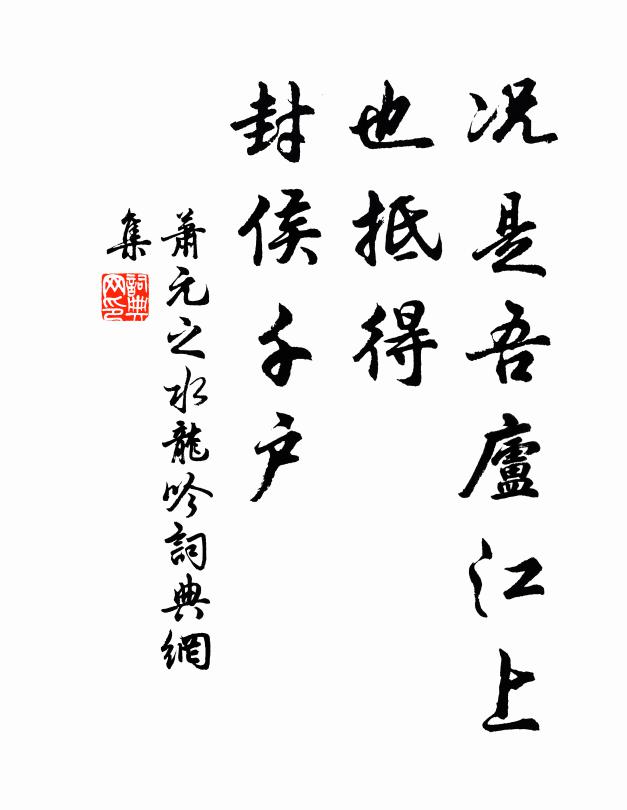 况是吾廬江上
也抵得
封侯千户
蕭元之水龍吟詞典網
集
詞典
网印